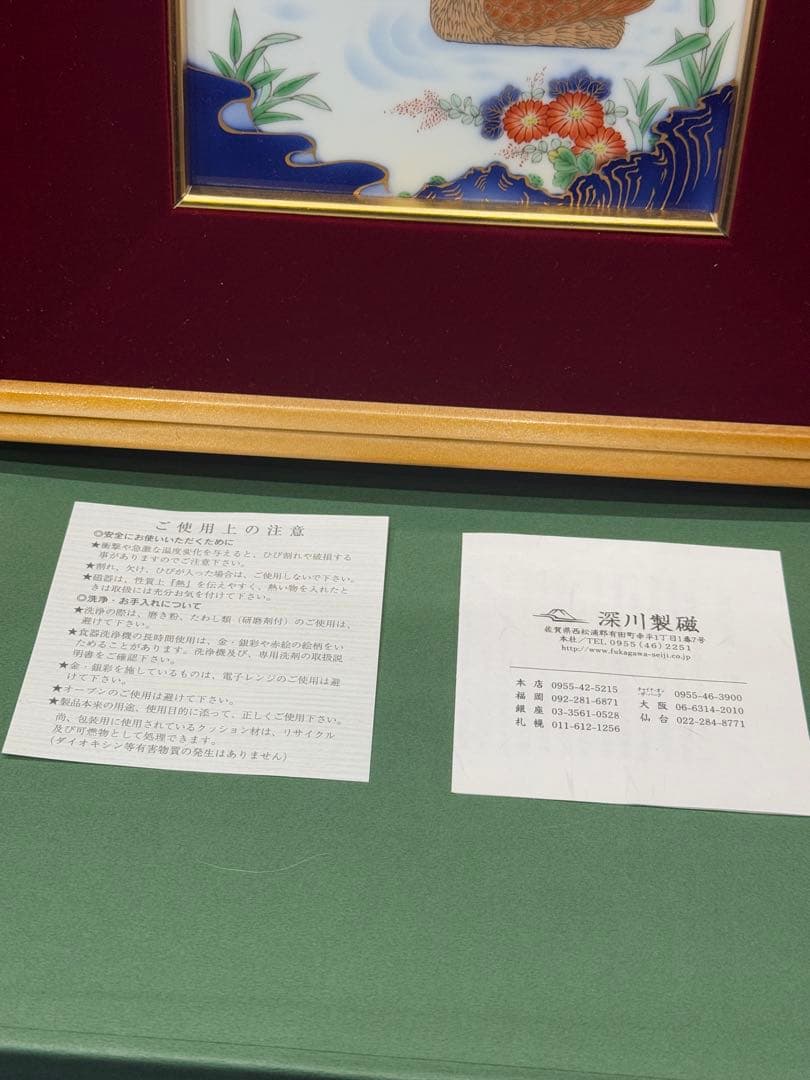 ご使用上の注意
◎安全にお使いいただくために
★衝撃や急激な温度変化を与えると、ひび割れや破損する
事がありますのでご注意下さい。
★割れ、欠け、ひびが入った場合は、ご使用しないで下さい。
★磁器は、性質上『熱』を伝えやすく、熱い物を入れたと
きは取扱には充分お気を付けて下さい。
◎洗浄・お手入れについて
★洗浄の際は、磨き粉、たわし類（研磨剤付）のご使用は、
避けて下さい。
★食器洗浄機の長時間使用は、金・銀彩や赤絵の絵柄をい
ためることがあります。洗浄機及び、専用洗剤の取扱説
明書をご確認下さい。
★金・銀彩を施しているものは、電子レンジのご使用は避
けて下さい。
★オーブンのご使用は避けて下さい。
★製品本来の用途、使用目的に添って、正しくご使用下さい。
尚、包装用に使用されているクッション材は、リサイクル
及び可燃物として処理できます。
（ダイオキシン等有害物質の発生はありません）
深川製磁
佐賀県西松浦郡有田町幸平1丁目1番7号
本社／TEL 0955(46)2251
http://www.fukagawa-seiji.co.jp
本店 0955-42-5215
福岡 092-281-6871
銀座 03-3561-0528
札幌 011-612-1256
チャイナ・オン
ザ・パーク 0955-46-3900
大阪 06-6314-2010
仙台 022-284-8771